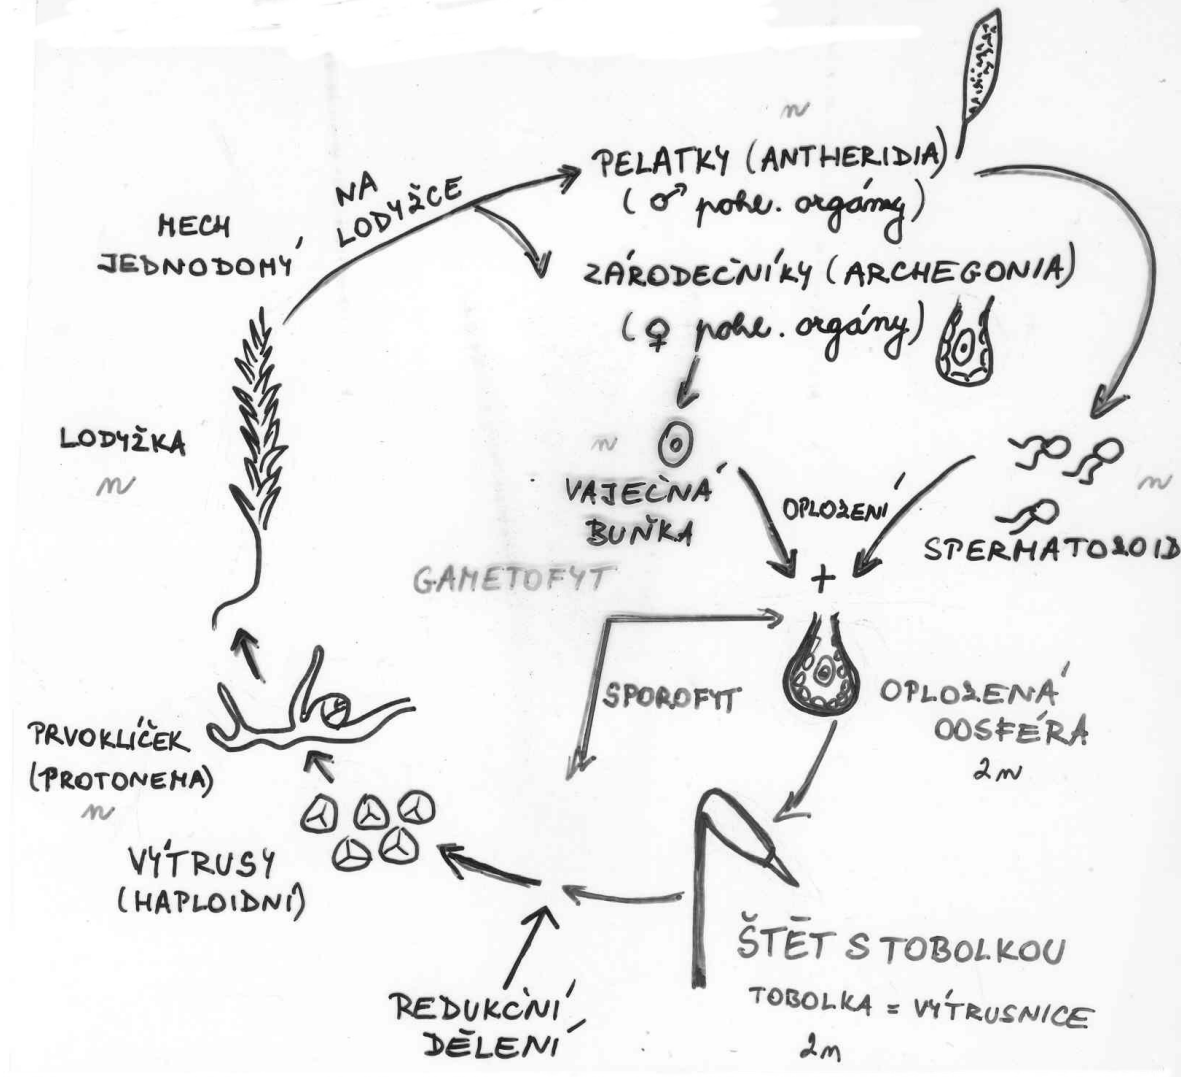 n
PELATKY (ANTHERIDIA)
(♂ pohl. orgány)
NA
LODYŽCE
MECH
JEDNODOMÝ
ZÁRODEČNÍKY (ARCHEGONIA)
(♀ pohl. orgány)
LODYŽKA
n
n
VAJEČNÁ
BUŇKA
OPLOZENÍ
n
SPERMATOZOID
+
GAMETOFYT
SPOROFYT
OPLOZENÁ
OOSFÉRA
2n
PRVOKLÍČEK
(PROTONEMA)
n
VÝTRUSY
(HAPLOIDNÍ)
REDUKČNÍ
DĚLENÍ
ŠTĚT S TOBOLKOU
TOBOLKA = VÝTRUSNICE
2n